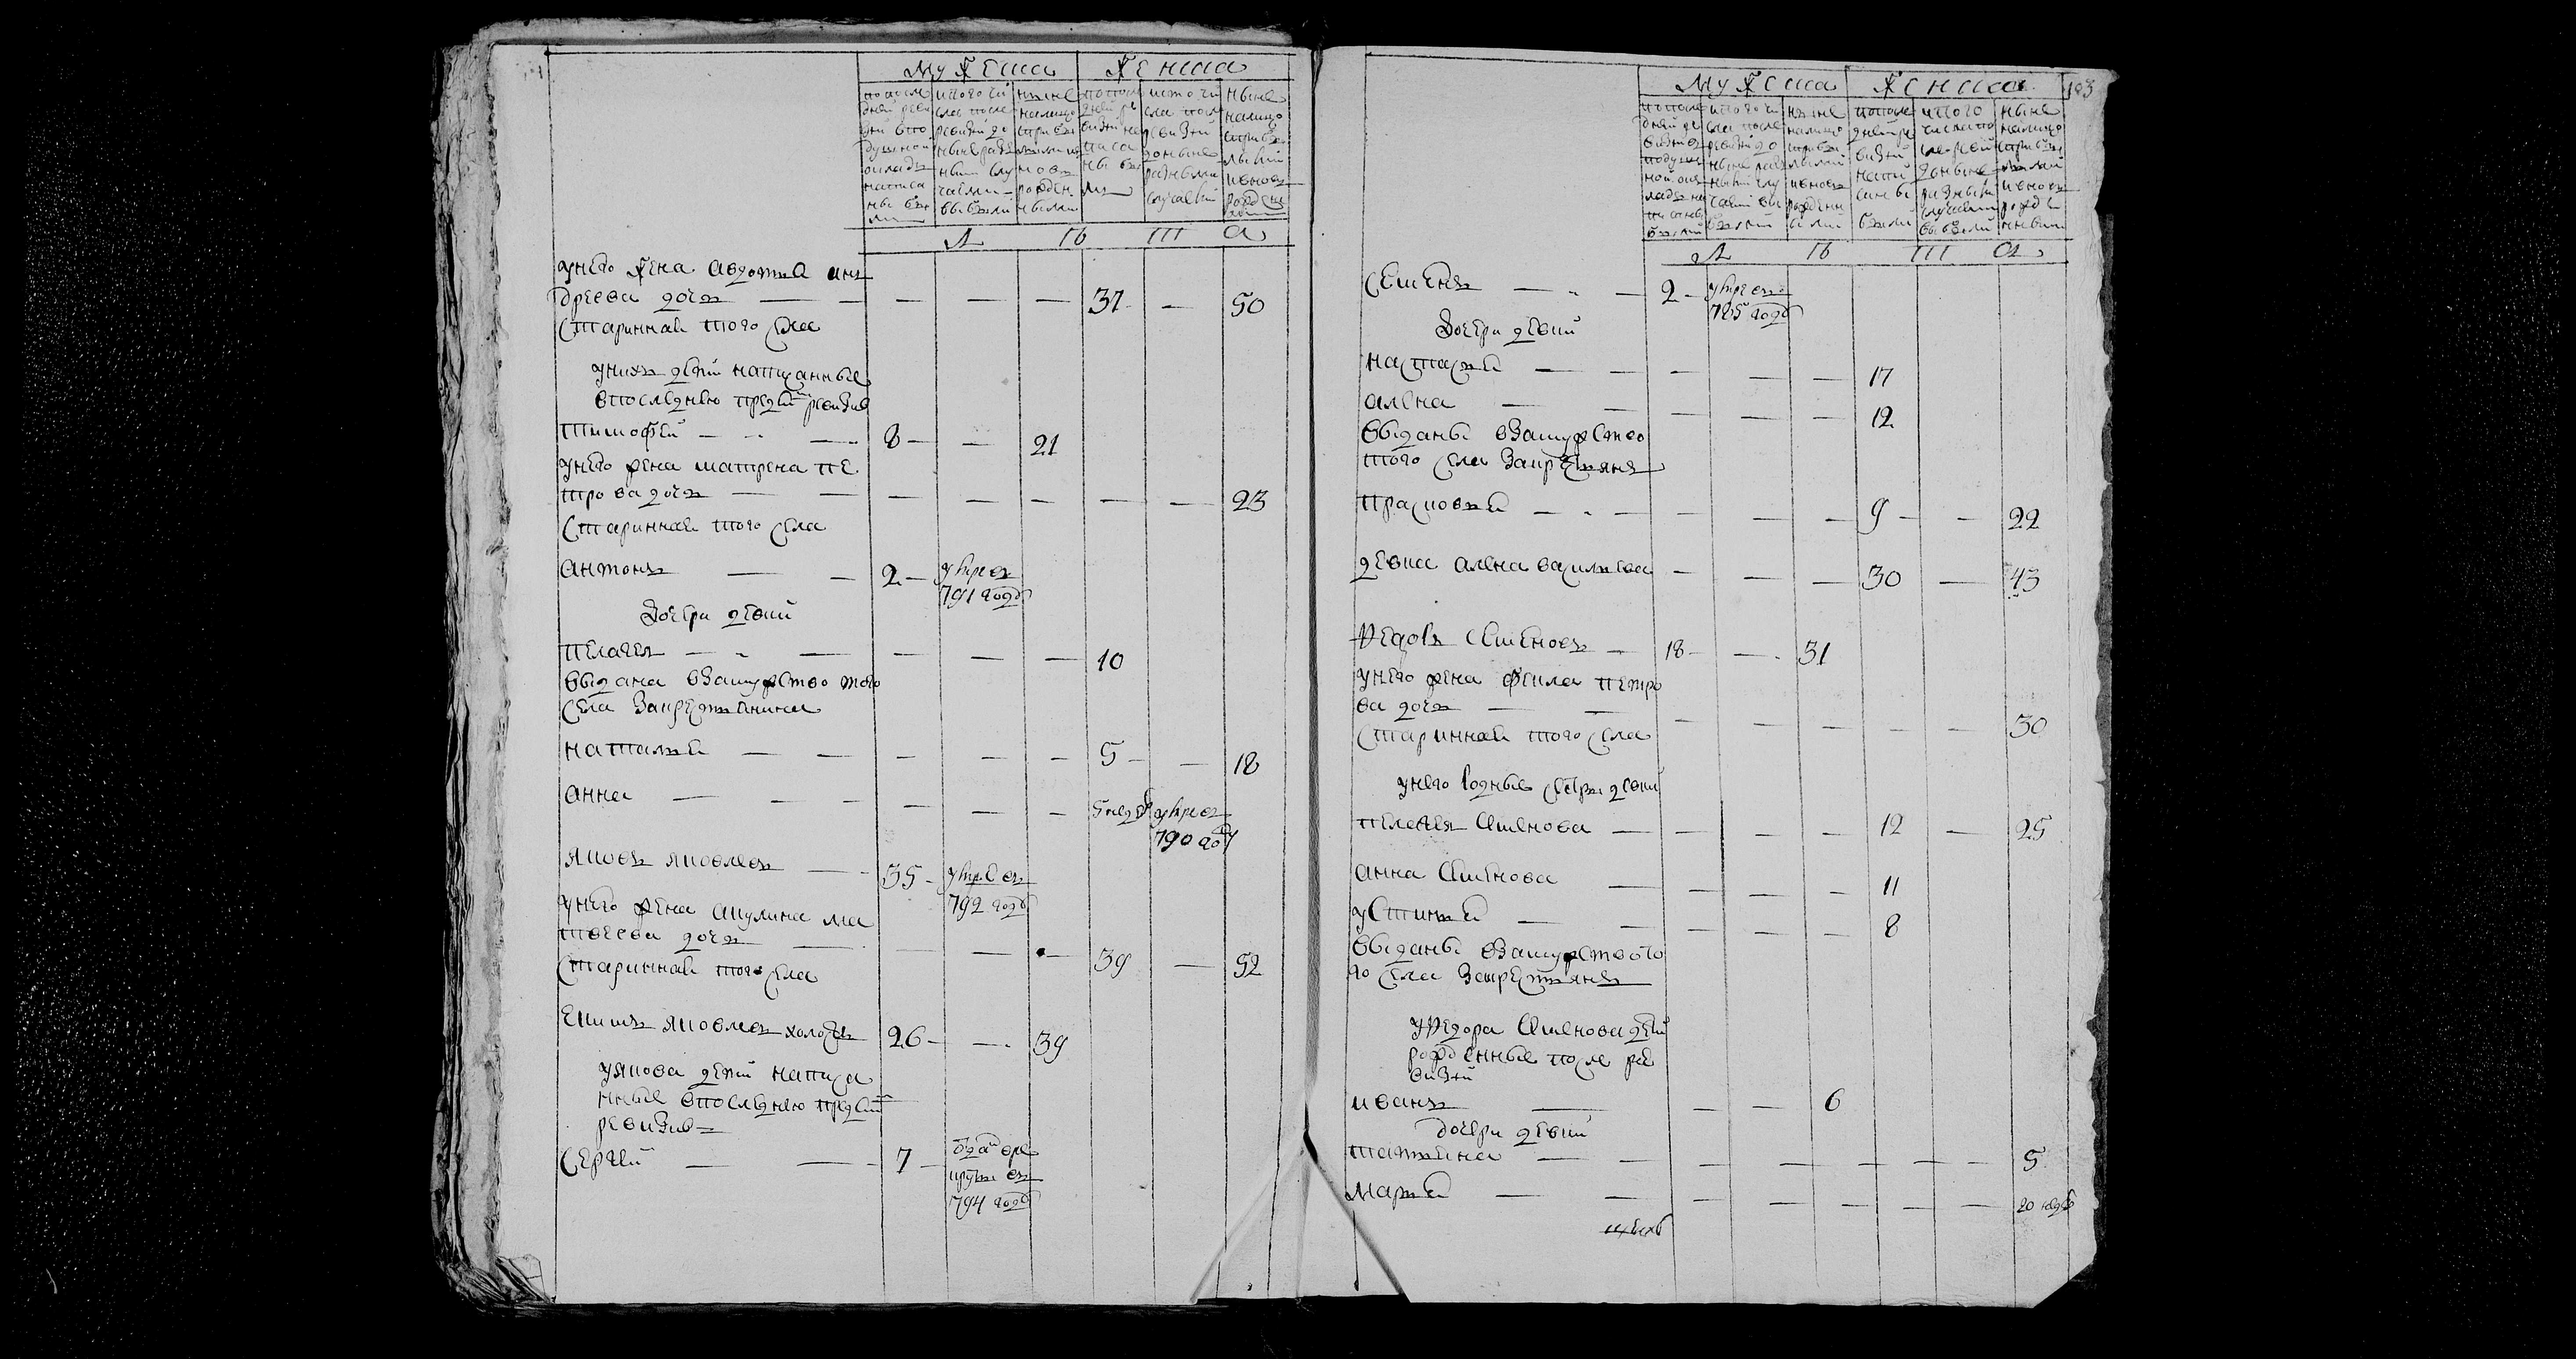 Мужеска Женска
по после
дней реви
зіи в по
душной
окладъ
написа
ны бы
ли
ис того чи
сла после
ревизіи до
ныне раз
ными слу
чаями
выбыли
ныне
налицо
с прибы
лыми и
новорожден
ными
по после
дней ре
визіи на
писа
ны бы
ли
ис того чи
сла после
ревизіи
до ныне
разными
случаи
ныне
налицо
с прибы
лыми
и вновь
рожден
Л ѣ т а
у него жена авдотья ан
дреева дочь — — — — — 37 — 50
старинная того села
у них дети написанные
в последнею пред сим ревизию
тимофей — — 8 — — 21
у него жена матрена пе
трова дочь — — — — — — — 23
старинная того села
антонъ — — 2 — умре въ
791 годѣ
дочери девки
пелагея — — — — — 10
выдана взамужство того
села за крестьянина
наталья — — — — — 5 — — 18
анна — — — — — — 5 недѣ умре въ
790 году
яковъ яковлевъ — 35 — умре въ
792 годѣ
у него жена акулина ма
твеева дочь — — — — 39 — 52
старинная того села
екимъ яковлевъ холостъ 26 — — 39
у якова дети написа
нные в последнею пред сим
ревизию
сергей — — 7 — отдан в ре
круты въ
1794 годѣ
103
Мужеска Женска
Л ѣ т а
семенъ — — 2 — умре въ
785 годѣ
дочери девки
настасья — — — — — 17
алена — — — — — 12
выданы взамужство
того села за крестьянъ
прасковья — — — — — 9 — — 22
девка алена васильева — — — 30 — 43
федоръ семеновъ — 18 — — 31
у него жена фекла петро
ва дочь — — — — — — — 30
старинная того села
у него родные сестры девки
пелагея семенова — — — — 12 — 25
анна семенова — — — — 11
устинья — — — — — 8
выданы взамужство то
го села за крестьянъ
у федора семенова дети
рожденные после ре
визіи
иванъ — — — 6
дочери девки
татьяна — — — — — — — 5
марья — — — — — — — 20 недѣ